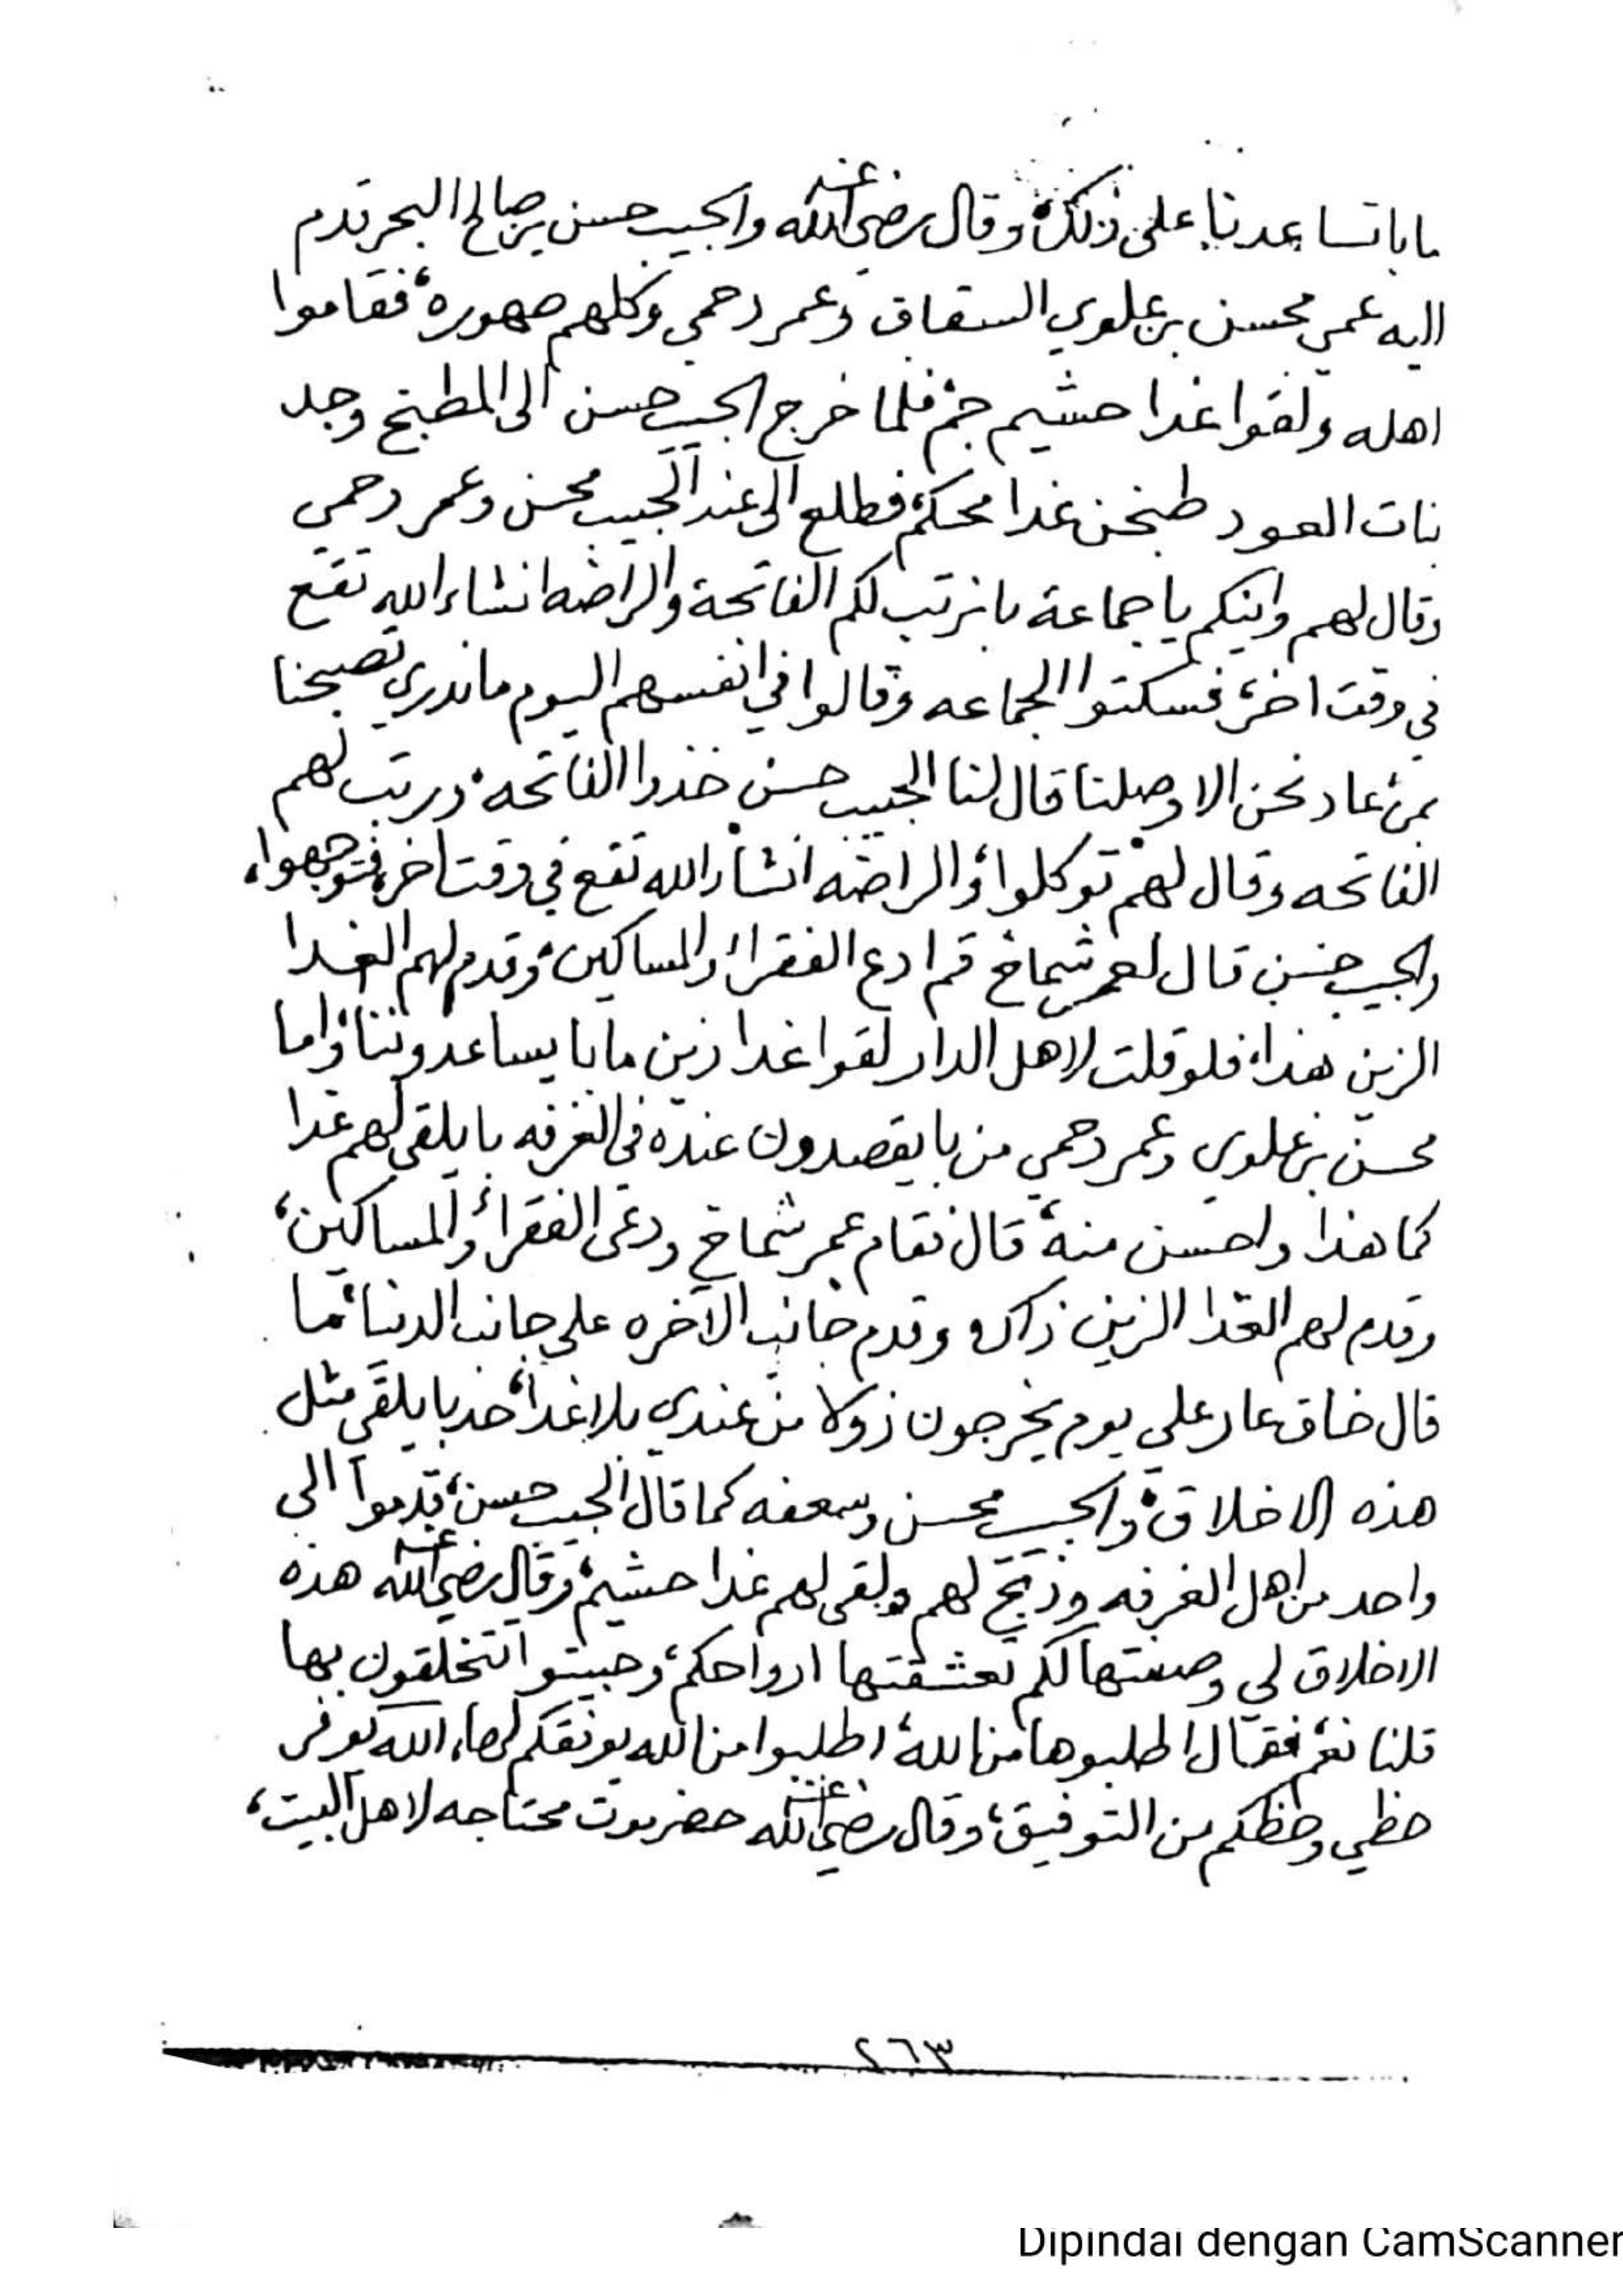 ماباتساعدنا على ذلك، وقال رضي الله عنه والحبيب حسن بن صالح البحر قدم
اليه عمي محسن بن علوي السقاف وعمر دحمي وكلهم صهوره، فقاموا
اهله ولقوا غدا حشيم جم فلما خرج الحبيب حسن الى المطبخ وجد
بنات العود طبخن غدا محكم، فطلع الى عند الحبيب محسن وعمر دحمي
وقال لهم وانيكم ياجماعة بانرتب لكم الفاتحة والراضه انشاء الله تقع
في وقت اخر، فسكتوا الجماعه وقالوا في انفسهم اليوم ماندري تصبحنا
بمن، عاد نحن الا وصلنا قال لنا الحبيب حسن خذوا الفاتحه، ورتب لهم
الفاتحه وقال لهم توكلوا، والراضه انشاء الله تقع في وقت اخر، فتوجهوا،
والحبيب حسن قال لعمر شماخ قم ادع الفقراء والمساكين، وقدم لهم الغدا
الزين هذا، فلو قلت لاهل الدار لقوا غدا زين مابا يساعدوننا، واما
محسن بن علوي وعمر دحمي من بايقصدون عنده في الغرفه بايلقي لهم غدا
كما هذا واحسن منه، قال فقام عمر شماخ ودعى الفقراء والمساكين،
وقدم لهم الغدا الزين ذاك، وقدم جانب الآخره على جانب الدنيا، ما
قال خاق عار علي يوم يخرجون ذولا من عندي بلا غدا، حد بايلقي مثل
هذه الاخلاق، والحبيب محسن وسعفه كما قال الحبيب حسن، قدموا الى
واحد من اهل الغرفه وذبح لهم ولقى لهم غدا حشيم، وقال رضي الله عنه هذه
الاخلاق لي وصفتها لكم تعشقتها ارواحكم، وحبيتوا تتخلقون بها
قلنا نعم، فقال اطلبوها من الله، اطلبوا من الله يوفقكم لها، الله يوفر
حظي وحظكم من التوفيق، وقال رضي الله عنه حضرموت محتاجه لاهل البيت،
٢٦٣
Dipindai dengan CamScanner